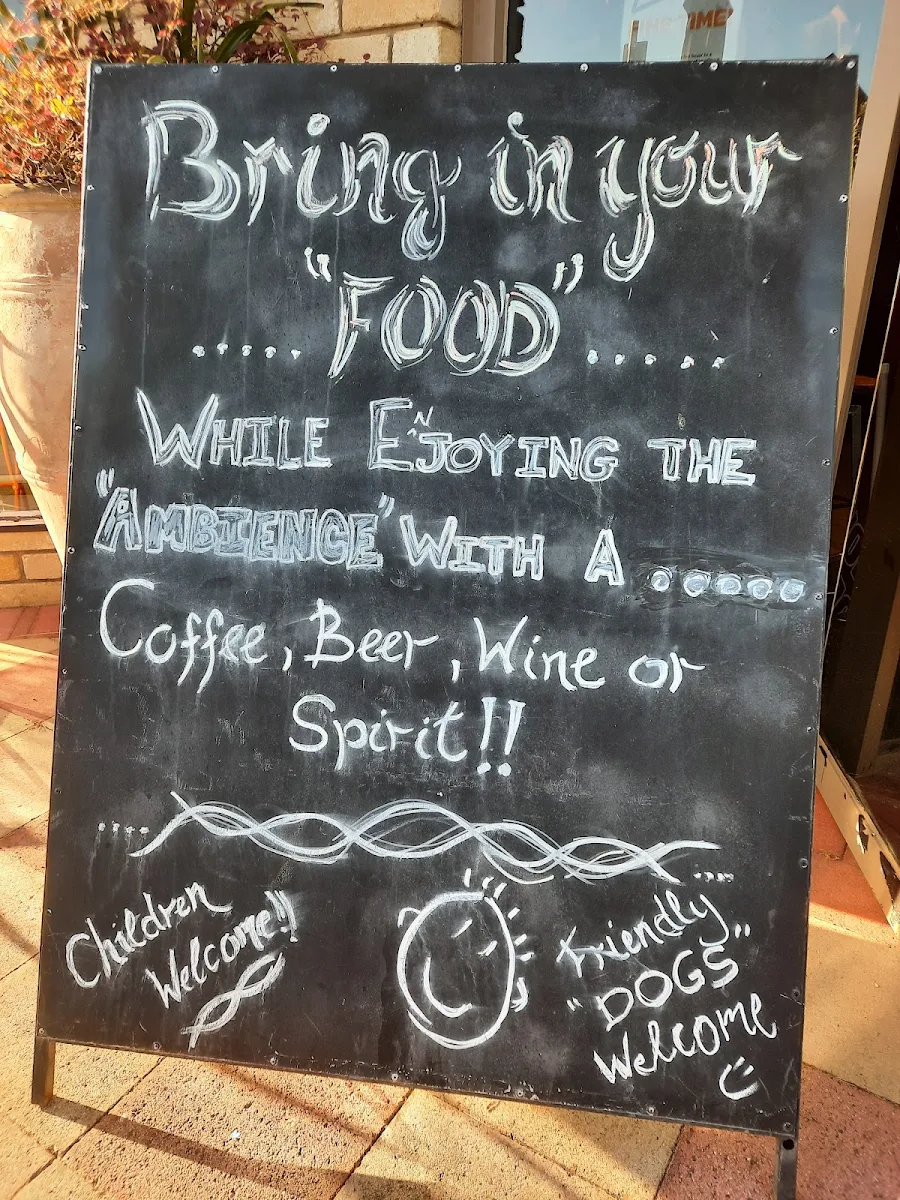 Bring in your
..... "FOOD" .....
WHILE ENJOYING THE
"AMBIENCE" WITH A .....
Coffee, Beer, Wine or
Spirit!!
Children
Welcome!!
Friendly
"DOGS"
Welcome